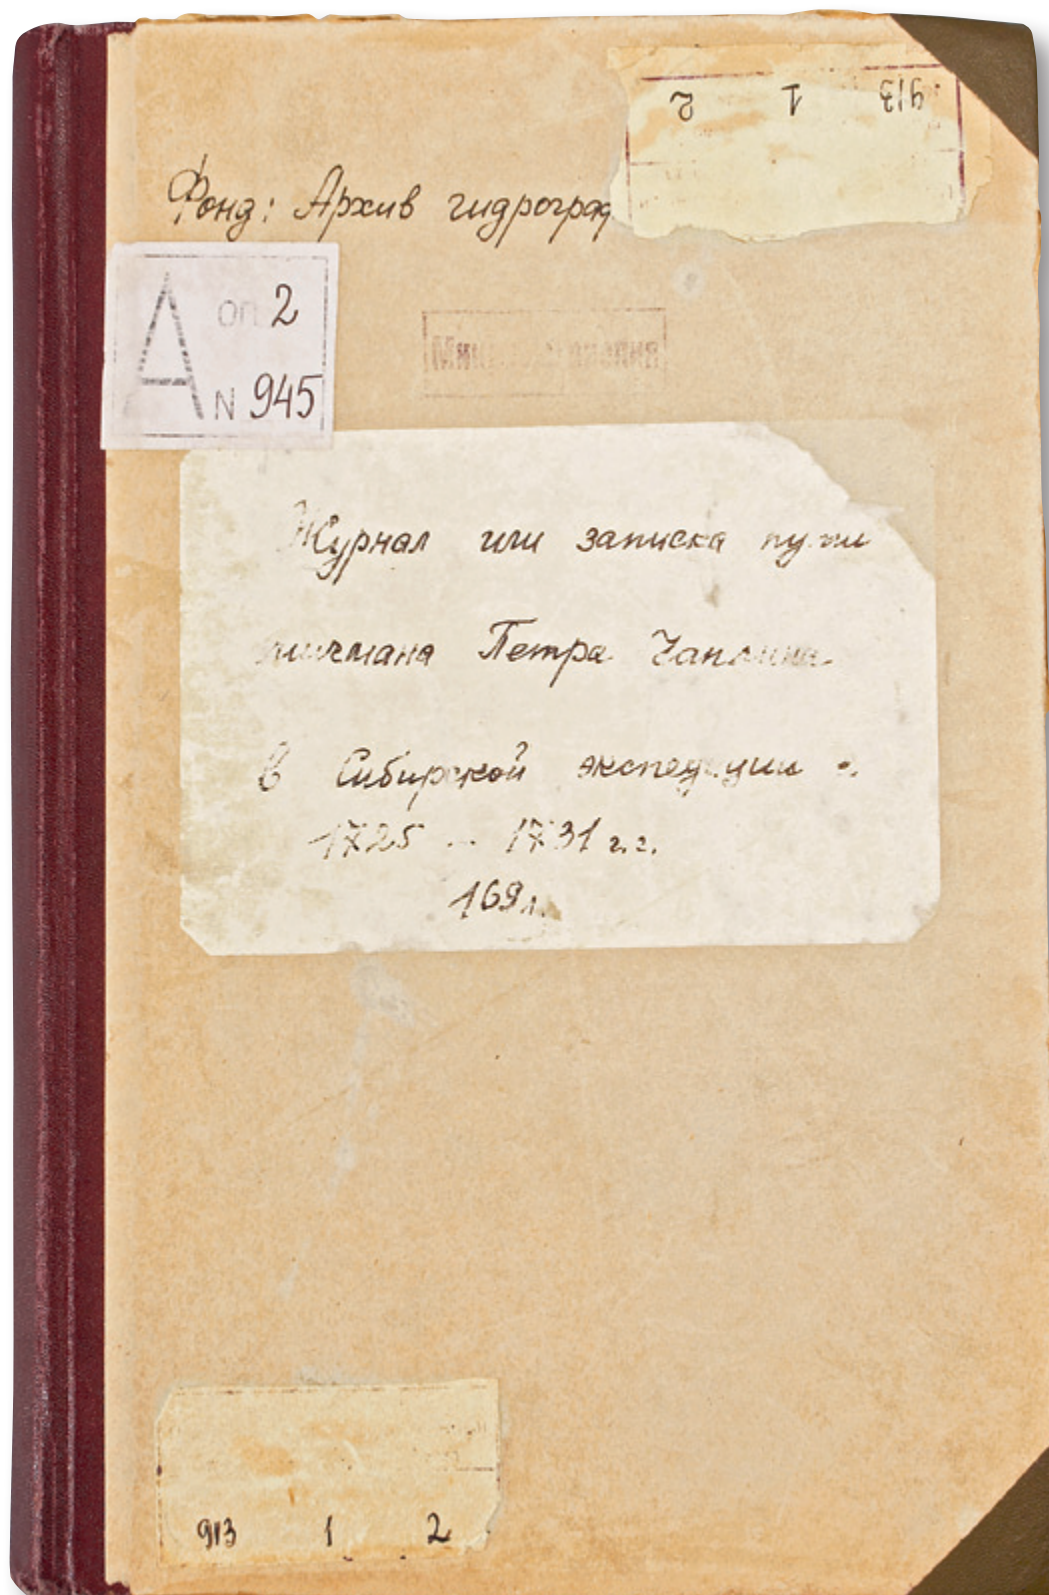 913 1 2
Фонд: Архив гидрограф
А оп 2
N 945
Журнал или записка пути
мичмана Петра Чаплина
в Сибирской экспедиции с
1725 - 1731 г.г.
169 л.
913 1 2